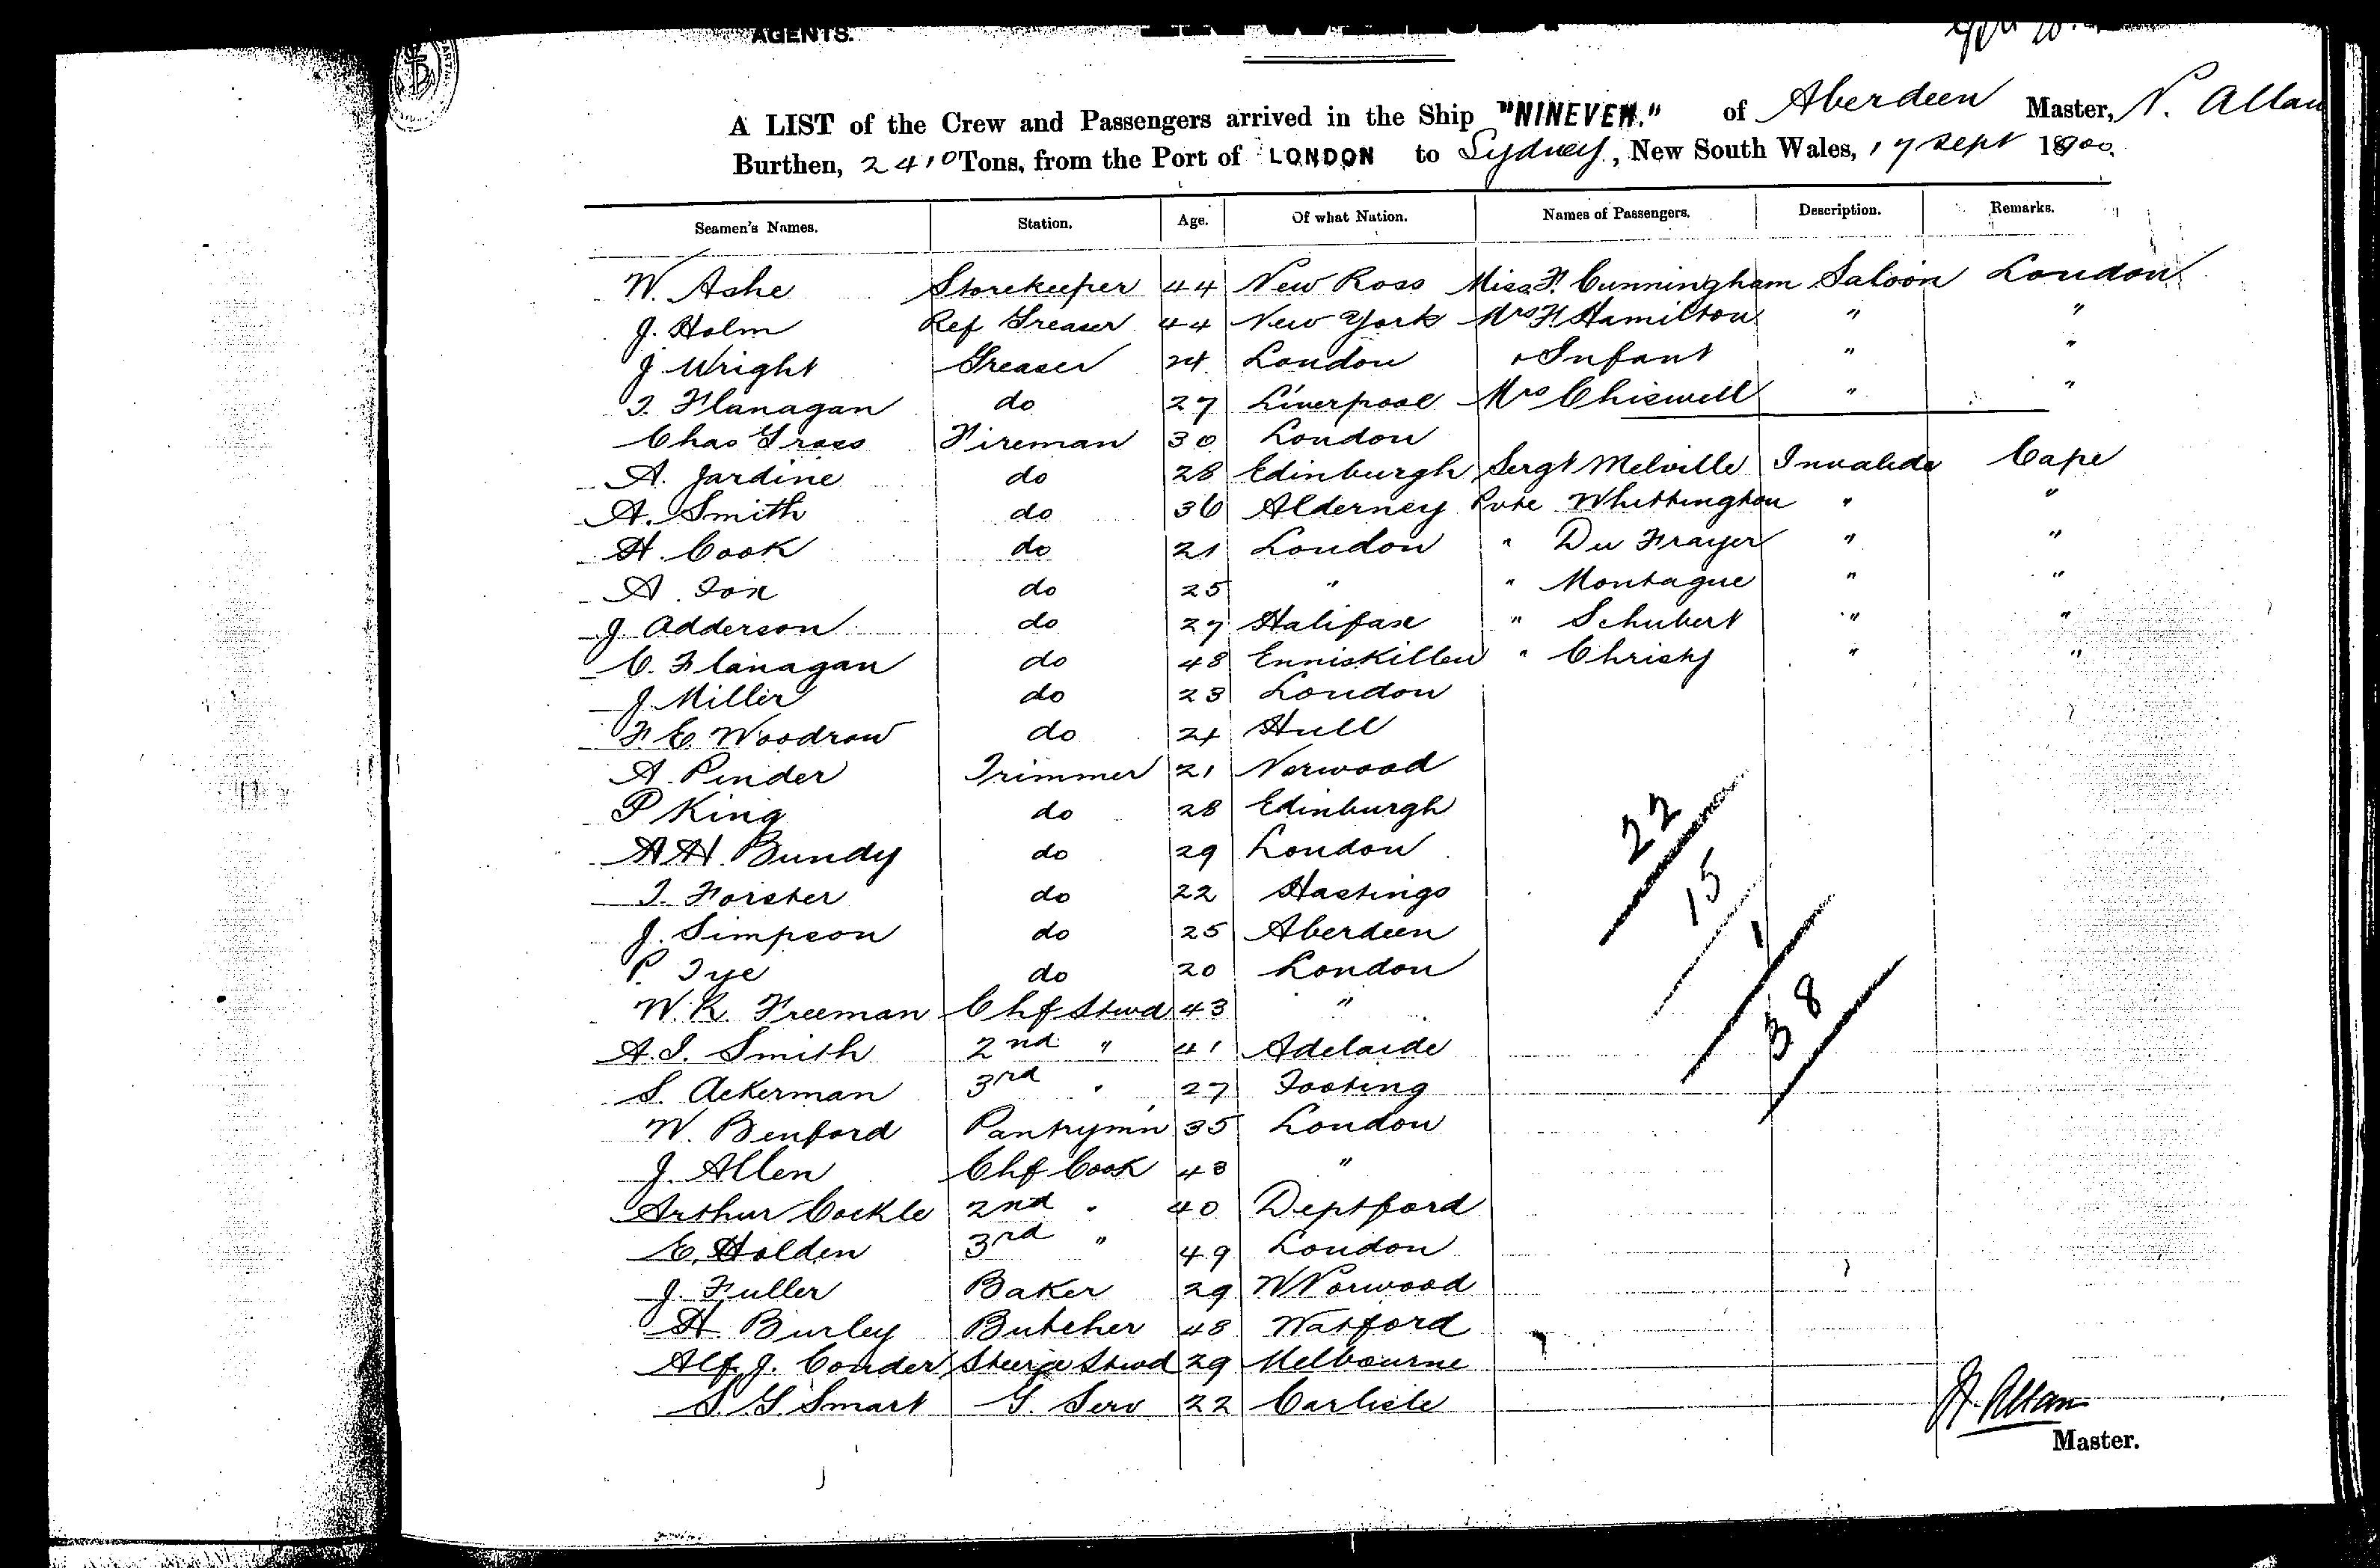 AGENTS.
A LIST of the Crew and Passengers arrived in the Ship "NINEVEH." of Aberdeen Master, N. Allan
Burthen, 2410 Tons, from the Port of LONDON to Sydney, New South Wales, 17 Sept 1900.
Seamen's Names. Station. Age. Of what Nation. Names of Passengers. Description. Remarks.
W. Ashe Storekeeper 44 New Ross Miss F. Cunningham Saloon London
J. Holm Ref Greaser 44 New York Mrs F. Hamilton " "
J. Wright Greaser 24 London + Infant " "
T. Flanagan do 27 Liverpool Mrs Chiswell " "
Chas Gross Fireman 30 London
A. Jardine do 28 Edinburgh Sergt Melville Invalids Cape
A. Smith do 36 Alderney Pvte Whittington " "
H. Cook do 21 London " Du Frayer " "
A. Fox do 25 " " Montague " "
J. Adderson do 27 Halifax " Schubert " "
C. Flanagan do 48 Enniskillen " Christy " "
J. Miller do 23 London
F E. Woodrow do 24 Hull
A. Pinder Trimmer 21 Norwood
P King do 28 Edinburgh
A H. Bundy do 29 London
T. Forster do 22 Hastings
J. Simpson do 25 Aberdeen
P. Tye do 20 London
W. R. Freeman Chf Stwd 43 "
A. J. Smith 2nd " 41 Adelaide
S. Ackerman 3rd " 27 Tooting
W. Benford Pantrymn 35 London
J. Allen Chf Cook 43 "
Arthur Cockle 2nd " 40 Deptford
E. Holden 3rd " 49 London
J. Fuller Baker 29 W Norwood
H. Burley Butcher 48 Watford
Alf. J. Conder Steerge Stwd 29 Melbourne
S. G. Smart G. Serv 22 Carlisle
22
15
1
38
N. Allan
Master.